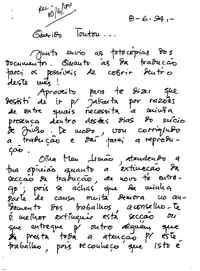 8-6-94.-
Querido Toutou...
Junto envio as fotocópias dos
documentos. Quanto às da tradução
farei os possíveis de cobrir dentro
deste mês!
Aproveito para te dizer que
desisti de ir p/ Jakarta por razões
de entre quais necessita a minha
presença dentro destes dias do início
de Julho. De modo, vou corrigindo
a tradução e daí para a reprodu-
ção.
Olha Meu Irmão, atendendo a
tua opinião quanto a extinção da
secção da tradução, de novo te rog-
go; pois se achas que da minha
parte de causa muita demora no an-
damento dos trabalhos aconselho-te
é melhor extinguir esta secção ou
que entregue p/ outro alguém que
de presta toda a atenção p/ este
trabalho, pois reconheço que isto é